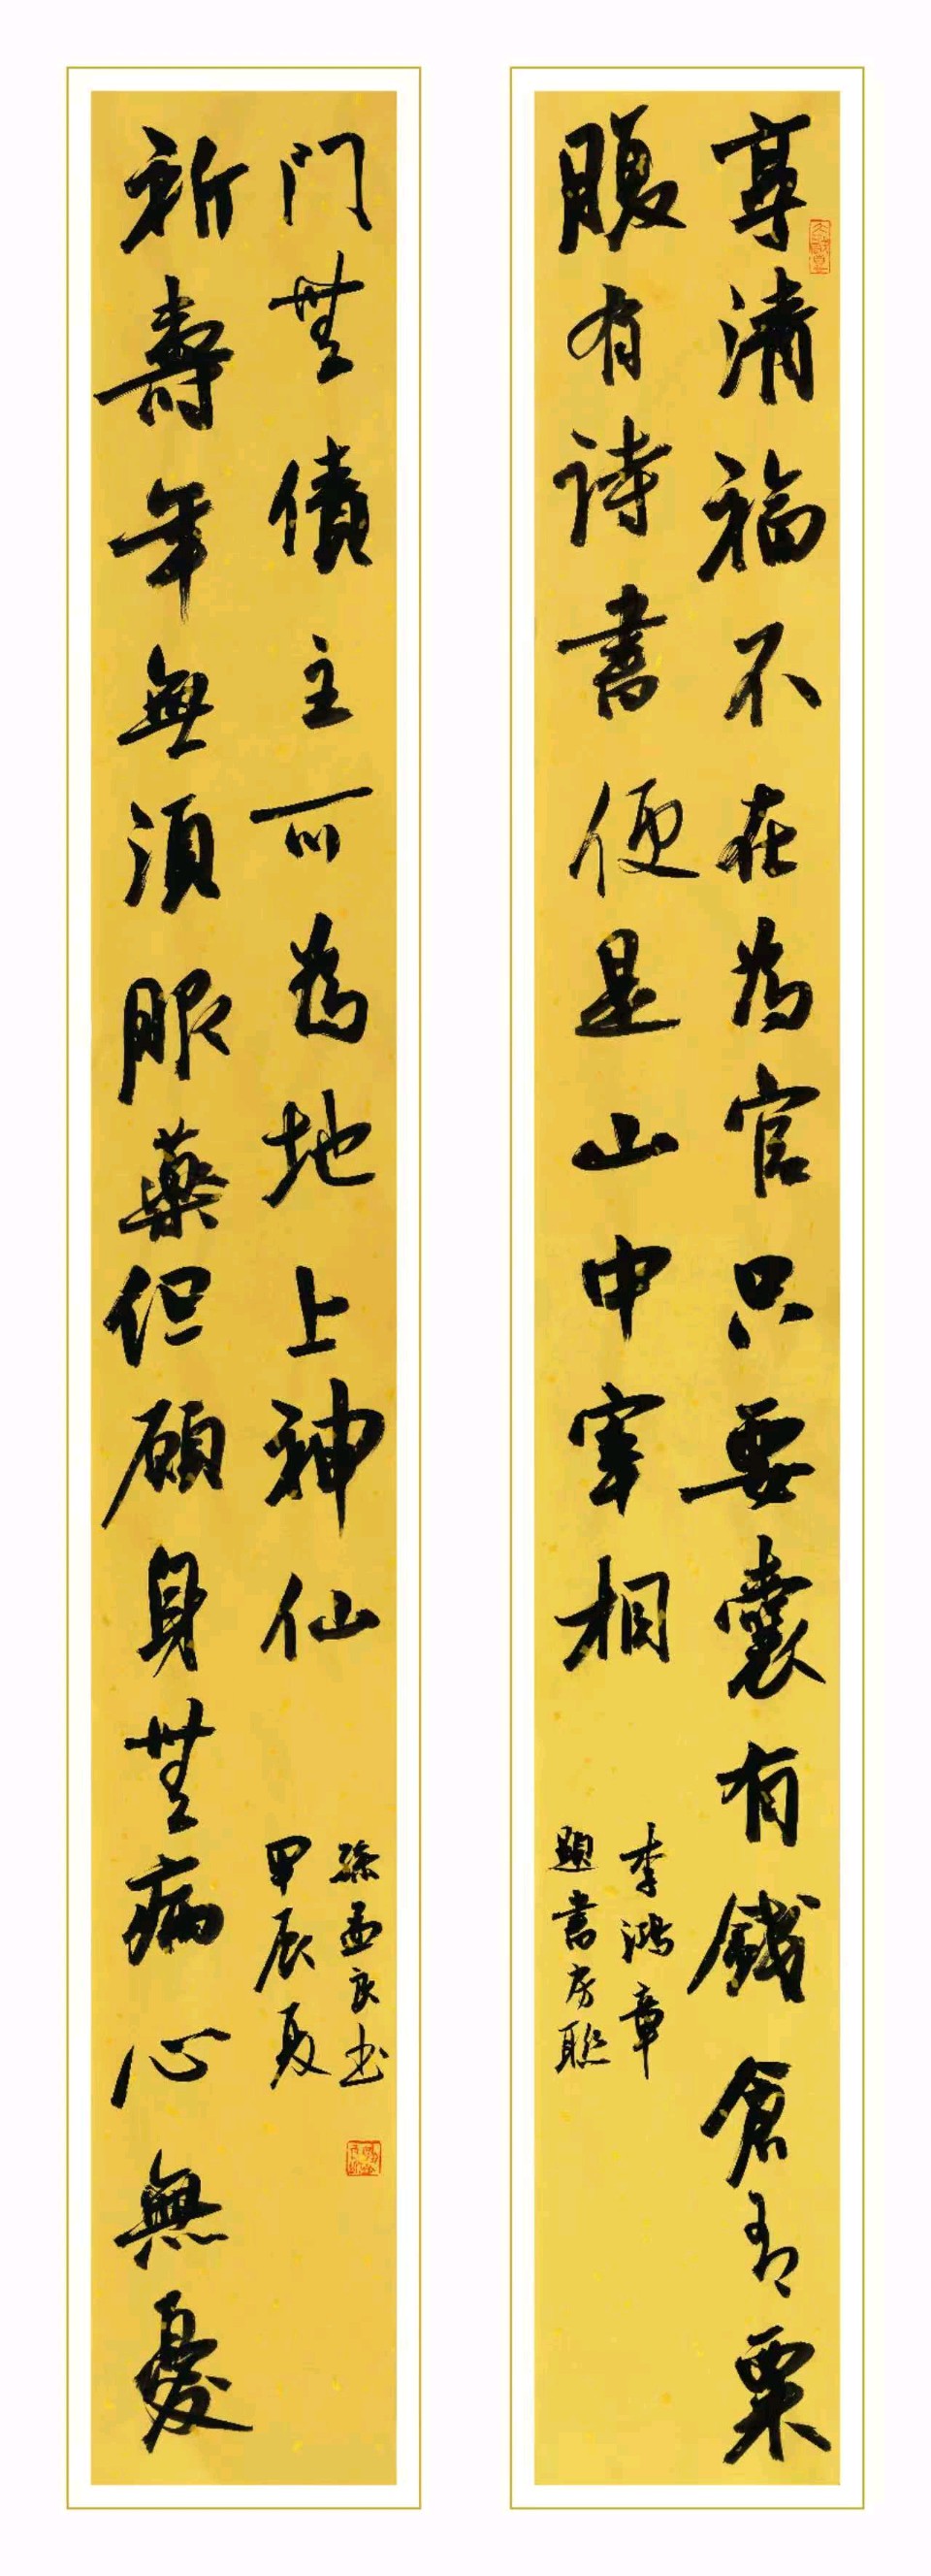 享清福不在為官只要囊有錢倉有粟
腹有詩書便是山中宰相
李鴻章
題書房聯
祈壽年無須服藥但願身無病心無憂
門無債主可為地上神仙
甲辰夏
孫孟良书